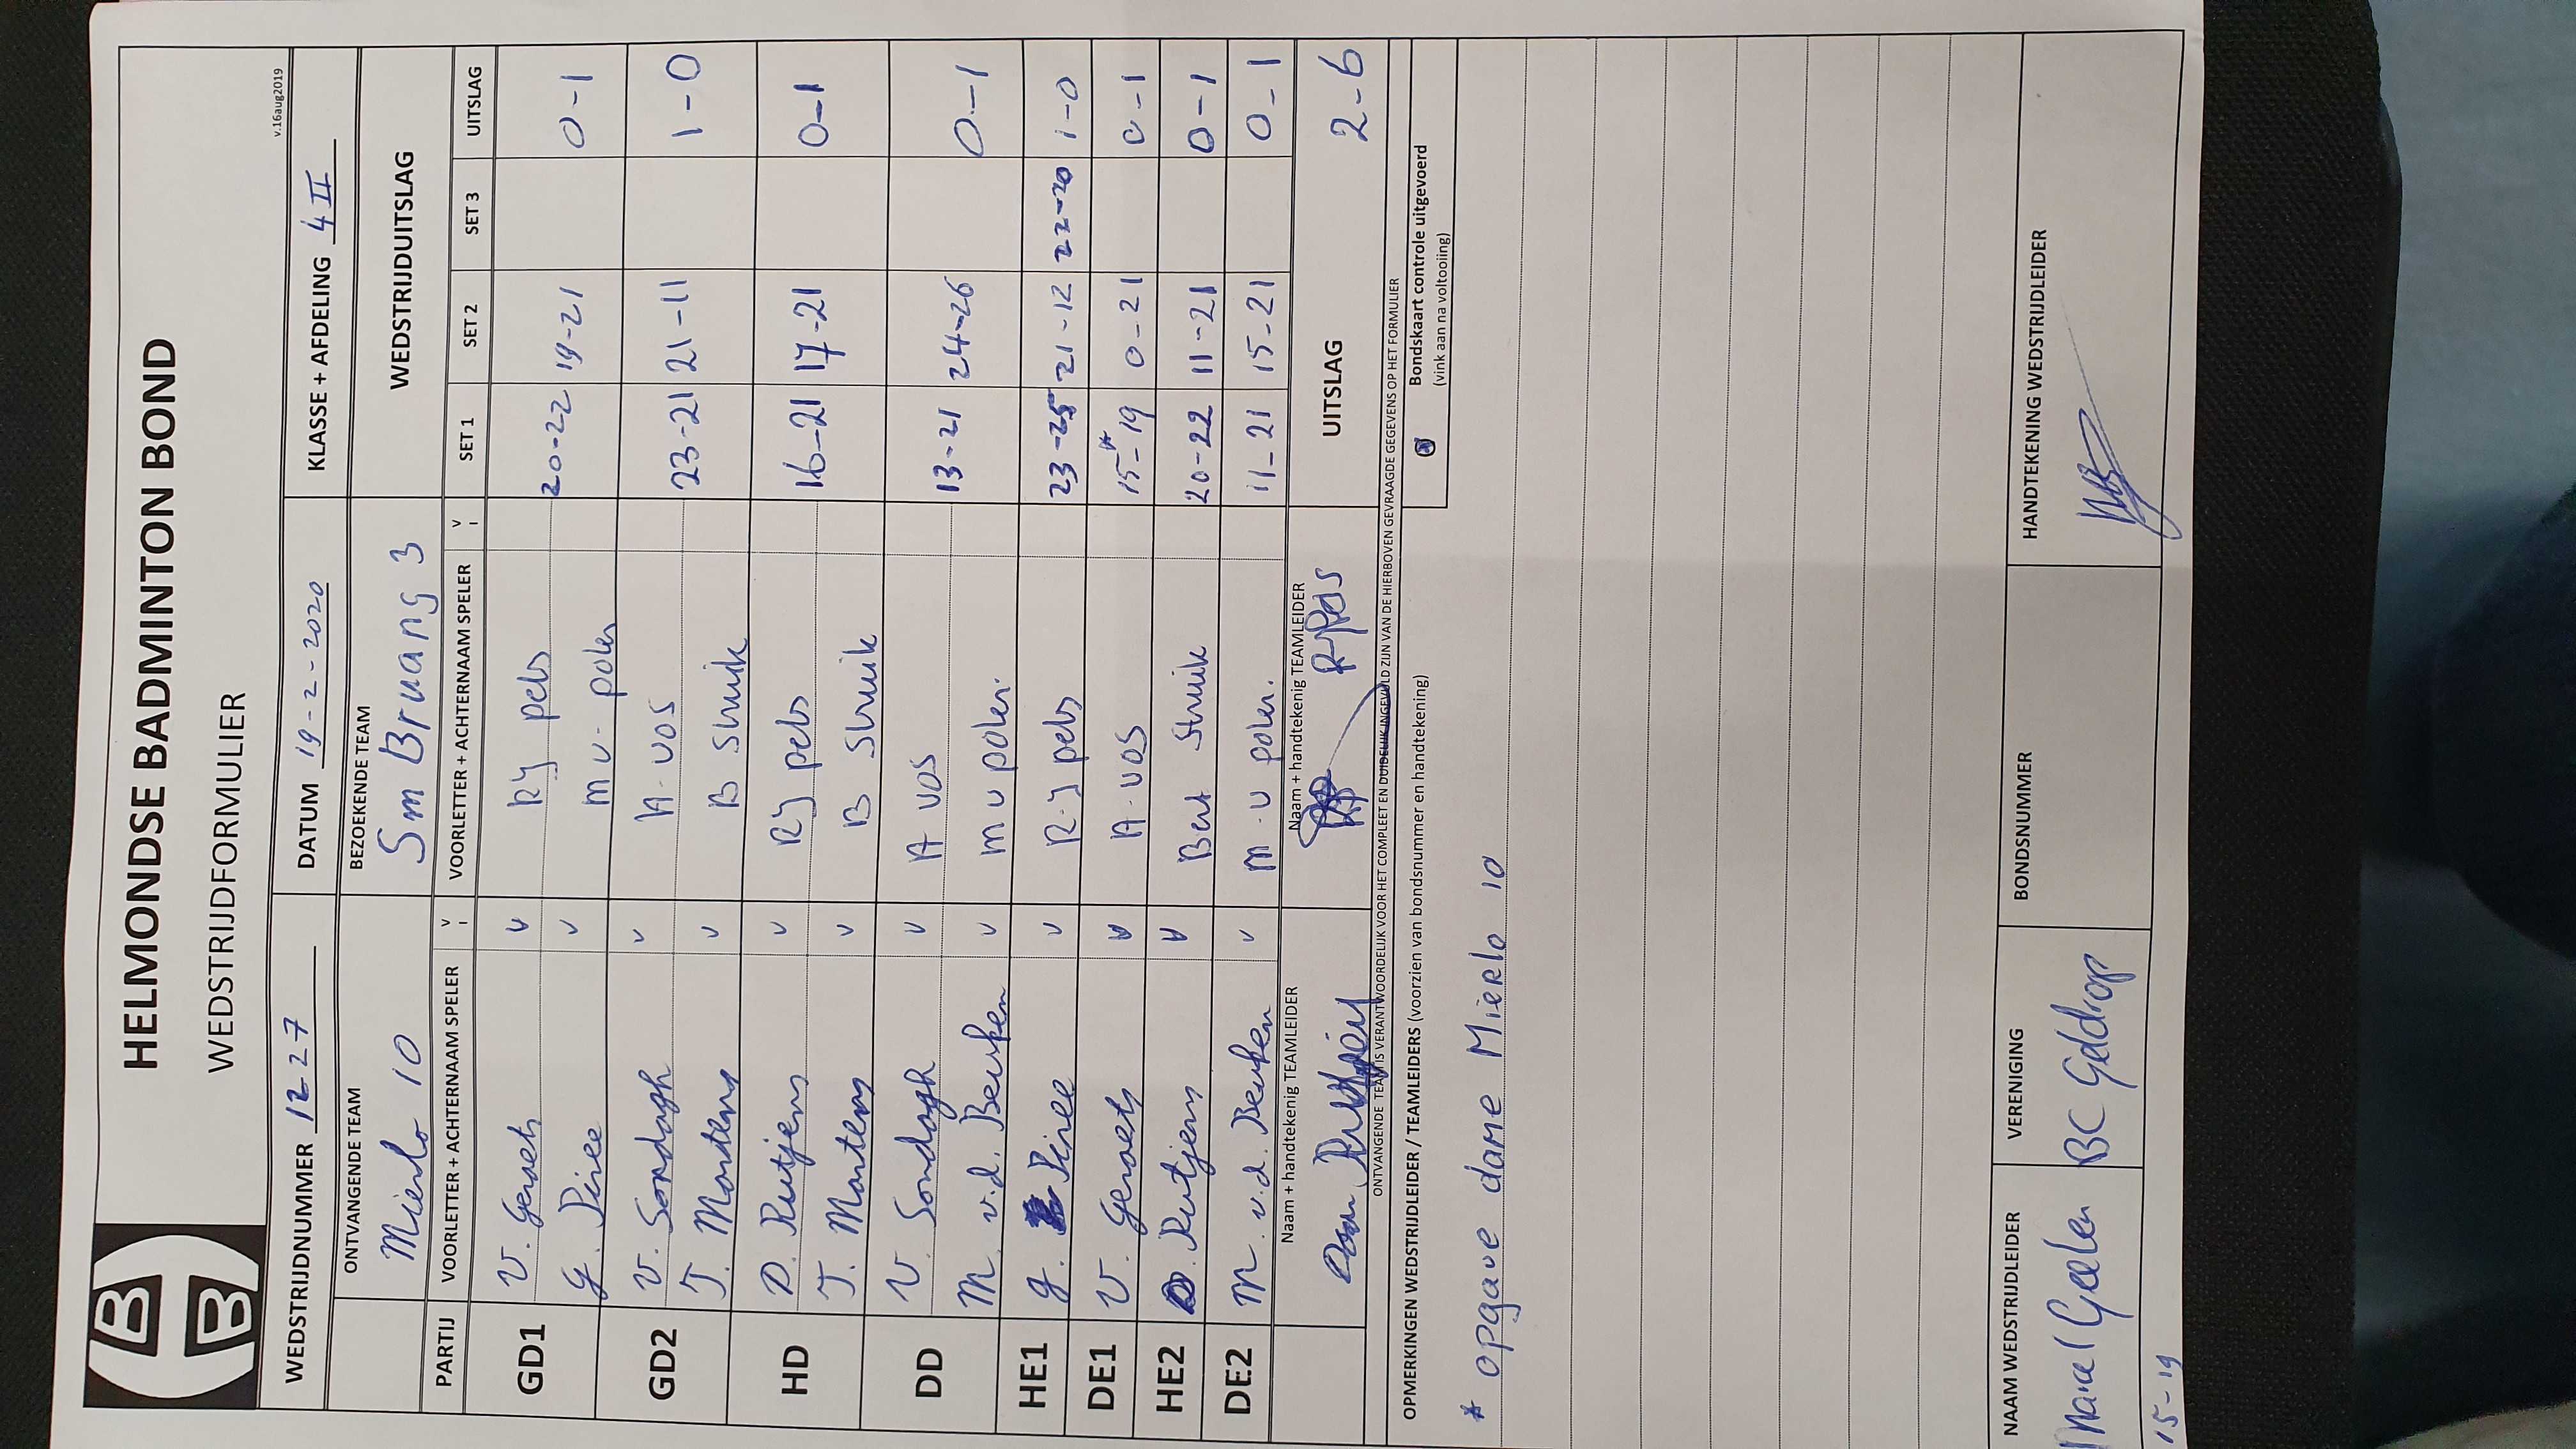 HELMONDSE BADMINTON BOND
WEDSTRIJDFORMULIER
v.16aug2019
WEDSTRIJDNUMMER 1227 DATUM 19-2-2020 KLASSE + AFDELING 4 II
ONTVANGENDE TEAM BEZOEKENDE TEAM WEDSTRIJDUITSLAG
Mierlo 10 Sm Bruang 3
PARTIJ VOORLETTER + ACHTERNAAM SPELER V I VOORLETTER + ACHTERNAAM SPELER V I SET 1 SET 2 SET 3 UITSLAG
GD1 V. Geraets v RJ pels 20-22 19-21 0-1
G. Pirée v m v. polen
GD2 V. Sondagh v A. vos 23-21 21-11 1-0
T. Martens v B Struik
HD D. Rutjens v RJ pels 16-21 17-21 0-1
T. Martens v B Struik
DD V. Sondagh v A vos 13-21 24-26 0-1
M. v.d. Beuken v m v polen.
HE1 G. Pirée v R.J pels 23-25 21-12 22-20 1-0
DE1 V. Geraets v A. vos 15*-19 0-21 0-1
HE2 D. Rutjens v Bert Struik 20-22 11-21 0-1
DE2 M. v.d. Beuken v M. v polen. 11-21 15-21 0-1
Naam + handtekenig TEAMLEIDER Naam + handtekenig TEAMLEIDER UITSLAG 2-6
Daan Rutjens RJPels
ONTVANGENDE TEAM IS VERANTWOORDELIJK VOOR HET COMPLEET EN DUIDELIJK INGEVULD ZIJN VAN DE HIERBOVEN GEVRAAGDE GEGEVENS OP HET FORMULIER
OPMERKINGEN WEDSTRIJDLEIDER / TEAMLEIDERS (voorzien van bondsnummer en handtekening) Bondskaart controle uitgevoerd
(vink aan na voltooiing)
* opgave dame Mierlo 10
NAAM WEDSTRIJDLEIDER VERENIGING BONDSNUMMER HANDTEKENING WEDSTRIJDLEIDER
Marcel Geelen BC Geldrop
15-19